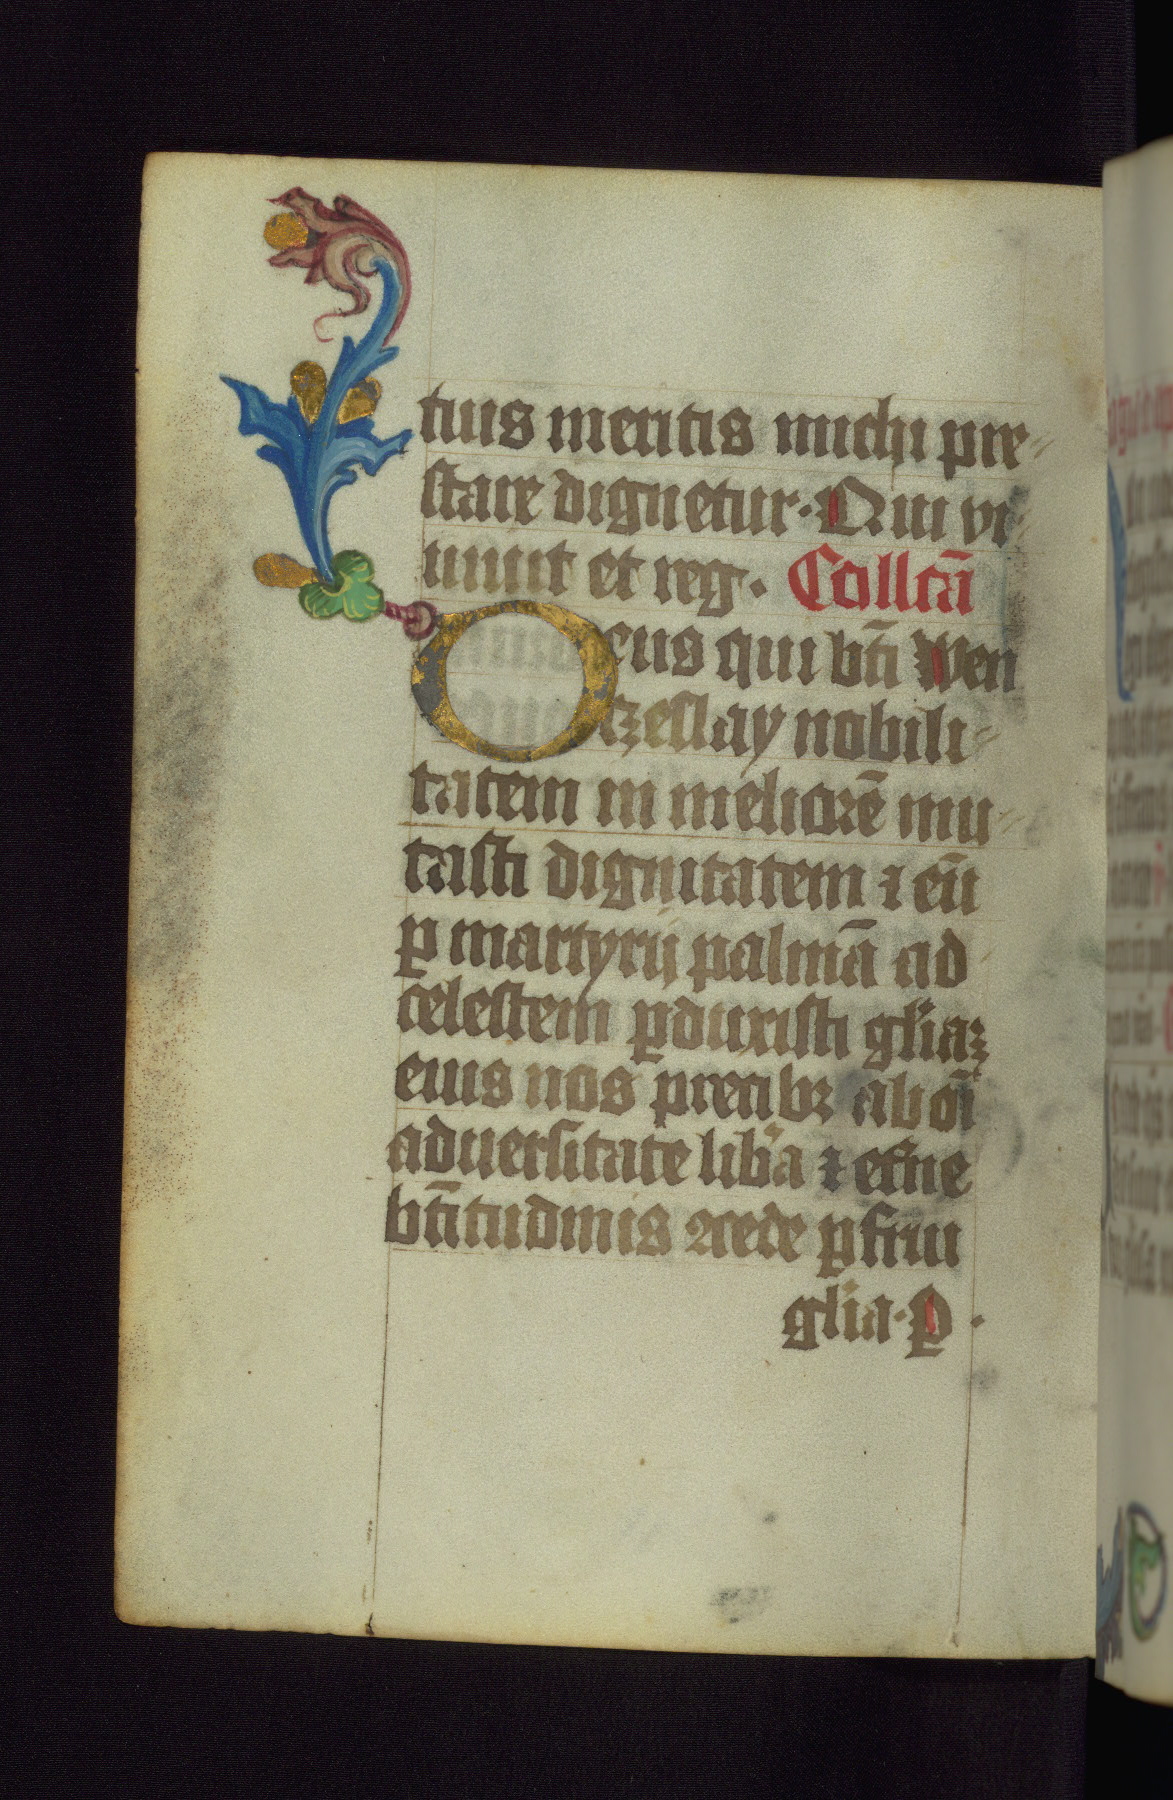 tuis meritis michi pre-
stare dignetur. Qui vi-
uunt et reg. Collcā
Deus qui bt̄i Wen
tzeslay nobili-
tatem in meliorē mu-
tasti dignitatem ⁊ eū
p martyrij palmā ad
celestem pduxisti gl̄iaꝫ
eius nos precibꝫ ab oī
aduersitate lib̓a ⁊ et̓ne
bt̄itudinis ꝯcede pfrui
gl̄ia. P.